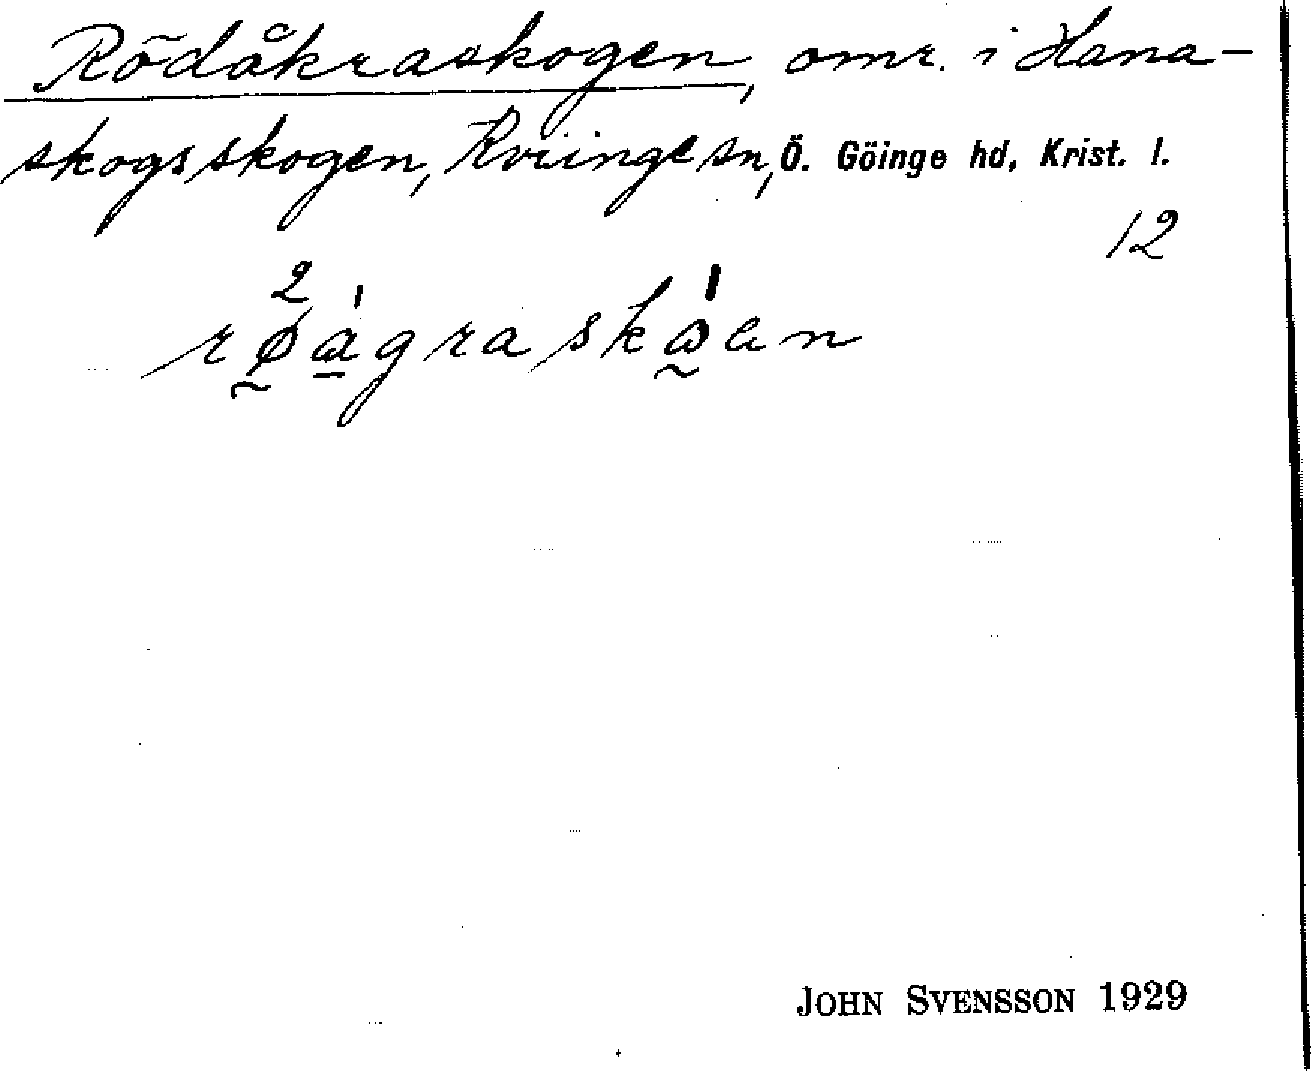 Rödåkraskogen, omr. i Hana-
skogsskogen, Kviinge sn, Ö. Göinge hd, Krist. l.
12
JOHN SVENSSON 1929